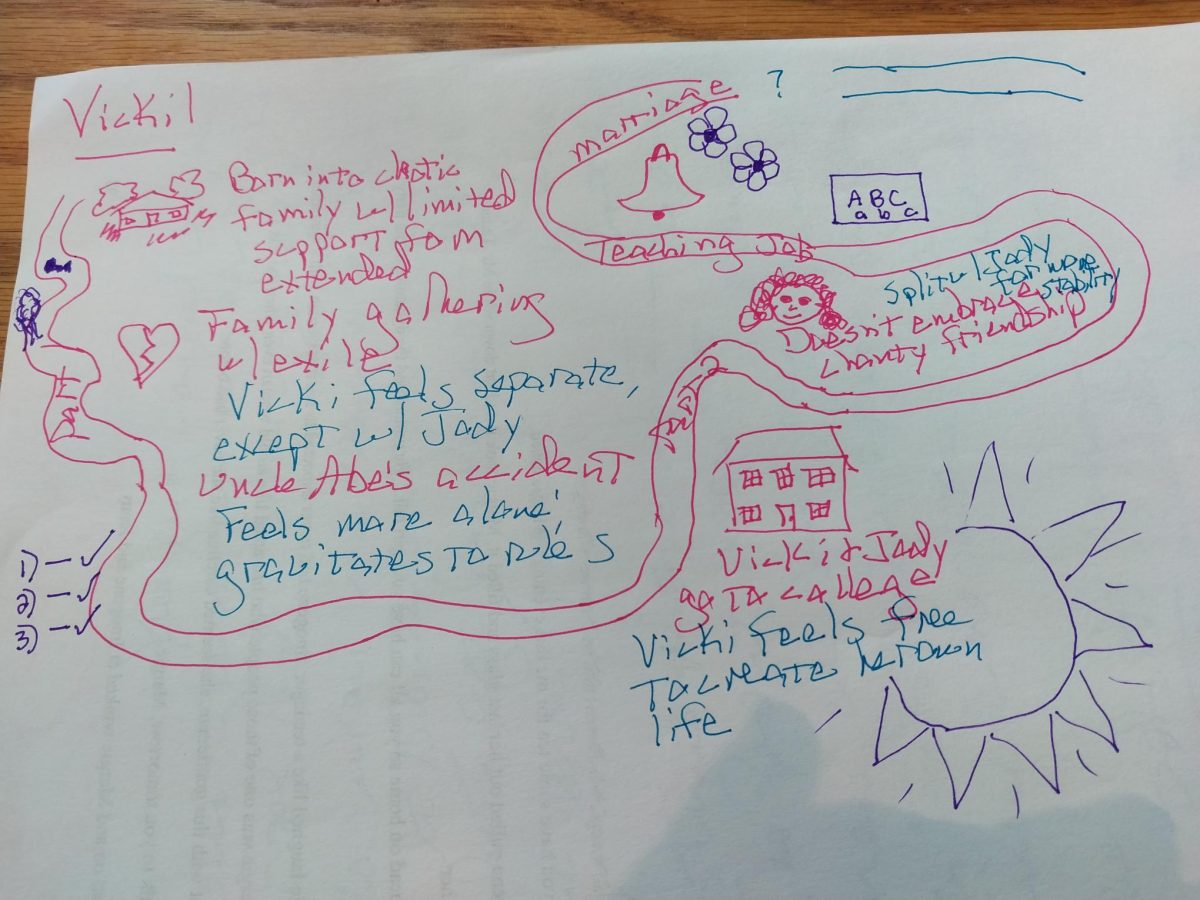 Vickil
Born into chatic
family w/ limited
support fom
extended
Family gathering
w/ exile
Vicki feels separate,
except w/ Jody
Uncle Abe's accident
Feels more alone'
gravitates to rule's
1) — ✓
2) — ✓
3) — ✓
marriage ?
ABC
abc
Teaching Job
Split w/ Jody
for more
stability
Doesn't embrace
charity friendship
Vicki & Jody
go to college
Vicki feels free
to create her own
life